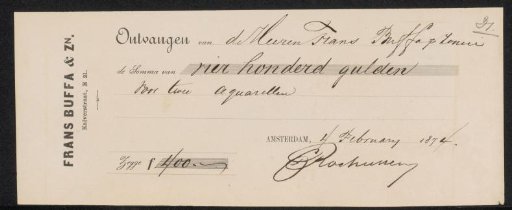 31
FRANS BUFFA & ZN.
Kalverstraat, E 21.
Ontvangen van d'Heeren Frans Buffa & Zonen
de Somma van vier honderd gulden
voor twee aquarellen
AMSTERDAM, 4 February 1874
Zegge f 400.-
CRochussen